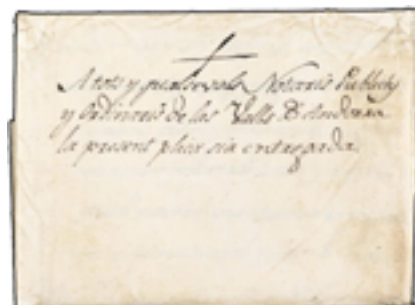 A tots y qualsevols Notaris Publichs
y Ordinaris de las Valls
la present plica sia entregada